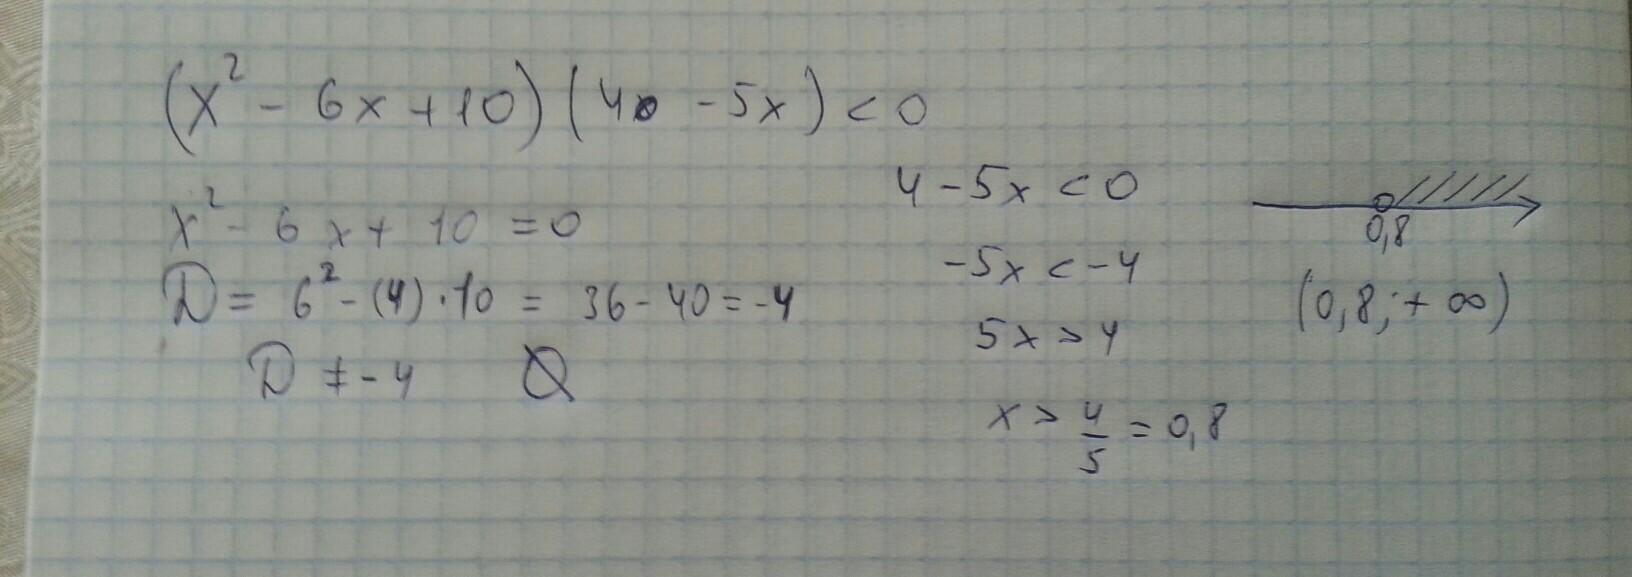 (x² - 6x + 10)(4 - 5x) < 0
x² - 6x + 10 = 0
D = 6² - (4)·10 = 36 - 40 = -4
D ≠ -4 ∅
4 - 5x < 0
-5x < -4
5x > 4
x > 4/5 = 0,8
0,8
(0,8; + ∞)